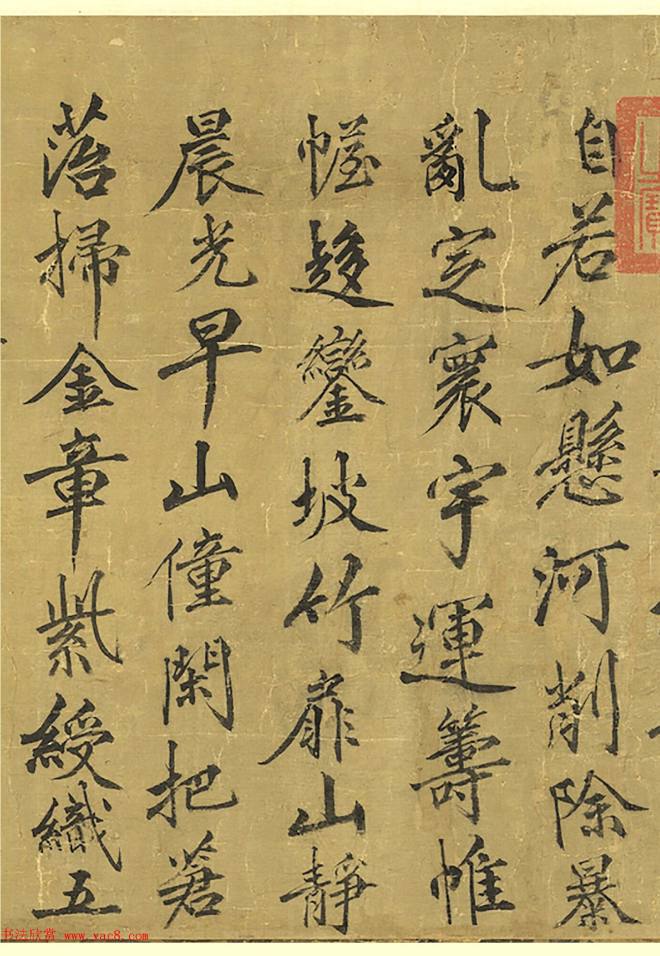 自若如懸河削除暴
亂定寰宇運籌帷
幄趍鑾坡竹扉山靜
晨光早山僮閑把蒼
菭掃金章紫綬織五
书法欣赏 www.yac8.com